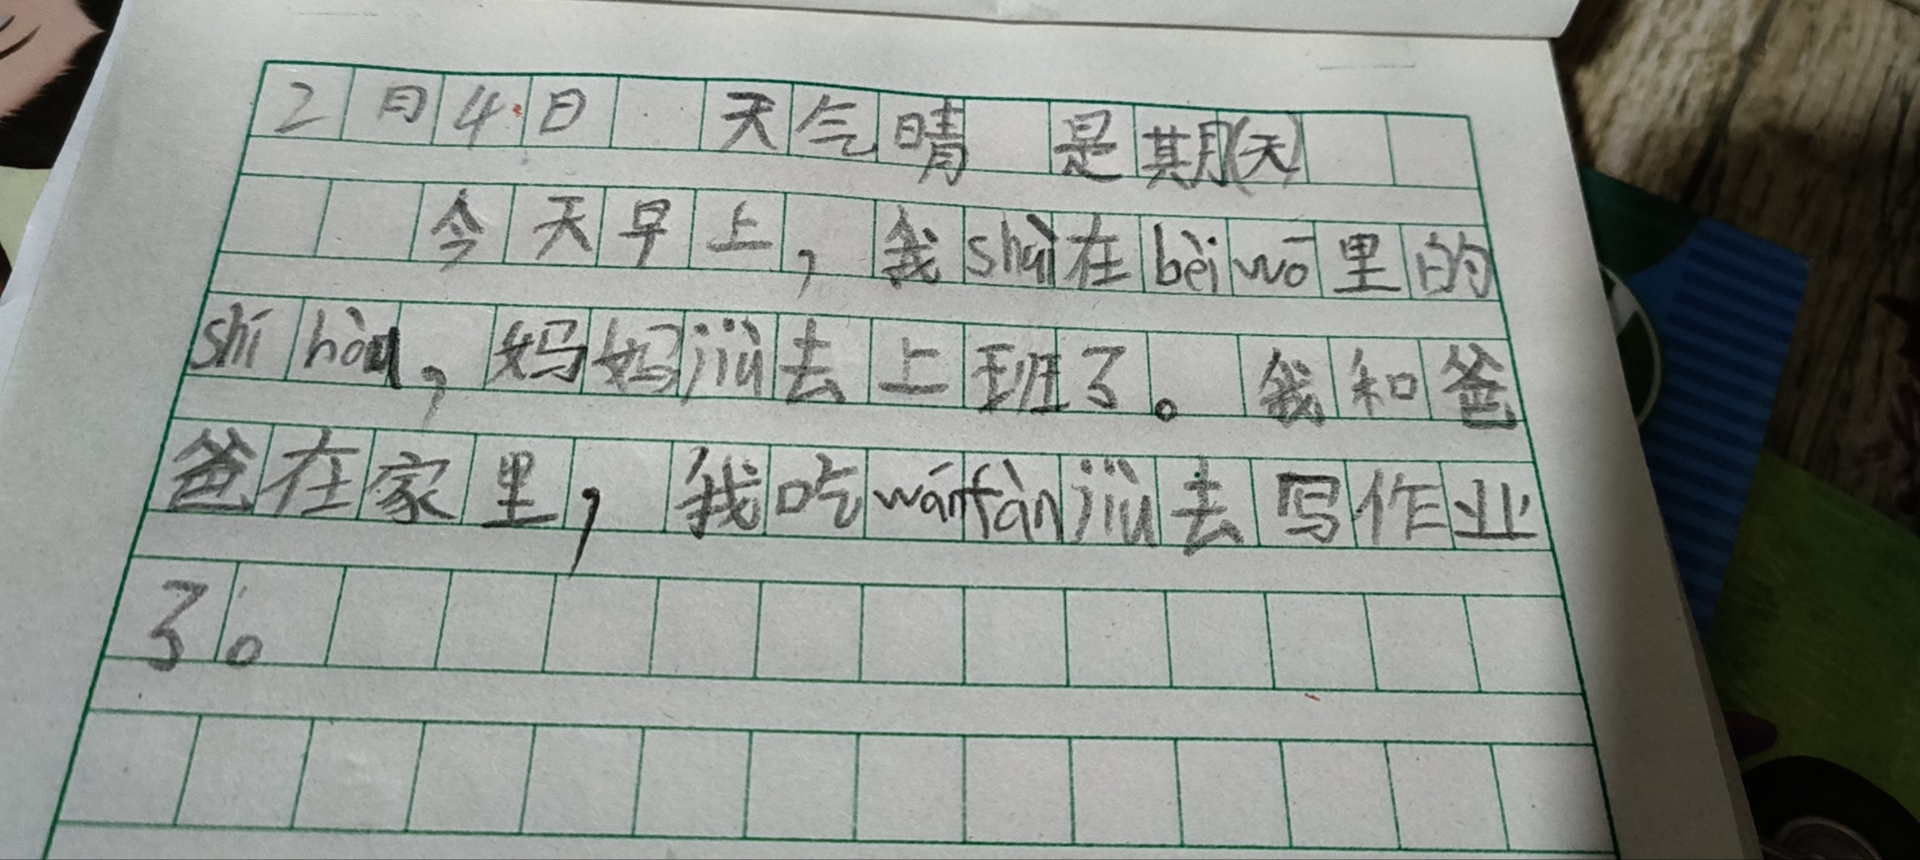 2月4日 天气晴 是期(天)
今天早上，我shuì在bèi wō里的
shí hòu，妈妈jiù去上班了。我和爸
爸在家里，我吃wán fàn jiù去写作业
了。